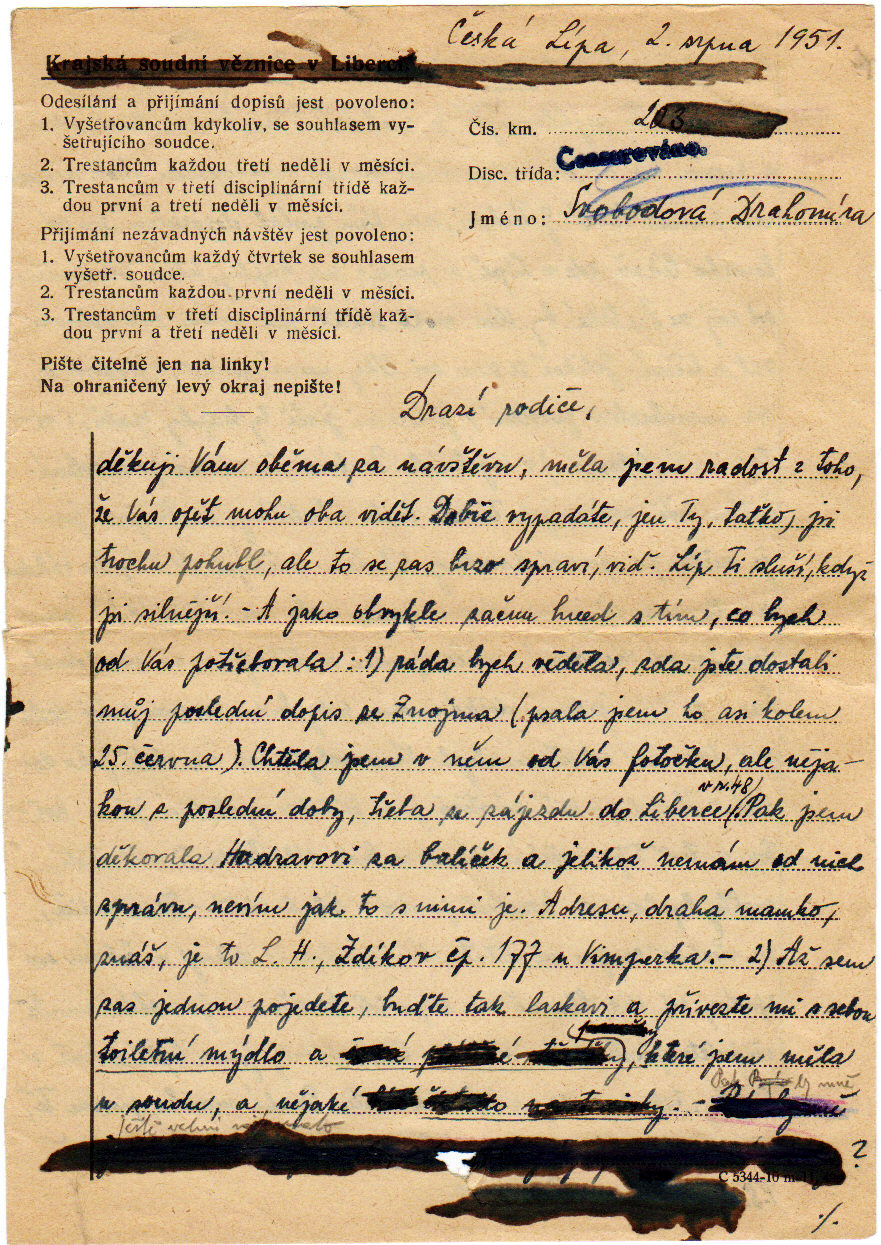 Česká Lípa, 2. srpna 1951.
Krajská soudní věznice v Liberci
Odesílání a přijímání dopisů jest povoleno:
1. Vyšetřovancům kdykoliv, se souhlasem vy-
šetřujícího soudce.
2. Trestancům každou třetí neděli v měsíci.
3. Trestancům v třetí disciplinární třídě kaž-
dou první a třetí neděli v měsíci.
Přijímání nezávadných návštěv jest povoleno:
1. Vyšetřovancům každý čtvrtek se souhlasem
vyšetř. soudce.
2. Trestancům každou první neděli v měsíci.
3. Trestancům v třetí disciplinární třídě kaž-
dou první a třetí neděli v měsíci.
Pište čitelně jen na linky!
Na ohraničený levý okraj nepište!
Čís. km. 203
Censurováno.
Disc. třída:
Jméno: Svobodová Drahomíra
Drazí rodiče,
děkuji Vám oběma za návštěvu, měla jsem radost z toho,
že Vás opět mohu oba vidět. Dobře vypadáte, jen Ty, taťko, jsi
trochu pohubl, ale to se zas brzo spraví, viď. Líp Ti sluší, když
jsi silnější. - A jako obvykle začnu hned s tím, co bych
od Vás potřebovala: 1) ráda bych věděla, zda jste dostali
můj poslední dopis ze Znojma (psala jsem ho asi kolem
25. června). Chtěla jsem v něm od Vás fotočku, ale něja-
kou z poslední doby, třeba ze zájezdu do Liberce (v r. 48). Pak jsem
děkovala Hadravovi za balíček a jelikož nemám od nich
zprávu, nevím jak to s nimi je. Adresu, drahá mamko,
znáš, je to L. H., Zdíkov čp. 177 u Vimperka. - 2) Až sem
zas jednou pojedete, buďte tak laskavi a přivezte mi s sebou
toiletní mýdlo a, které jsem měla
u soudu, a nějaké
Pak by mně
ještě velmi
?
C 5344-10
./.